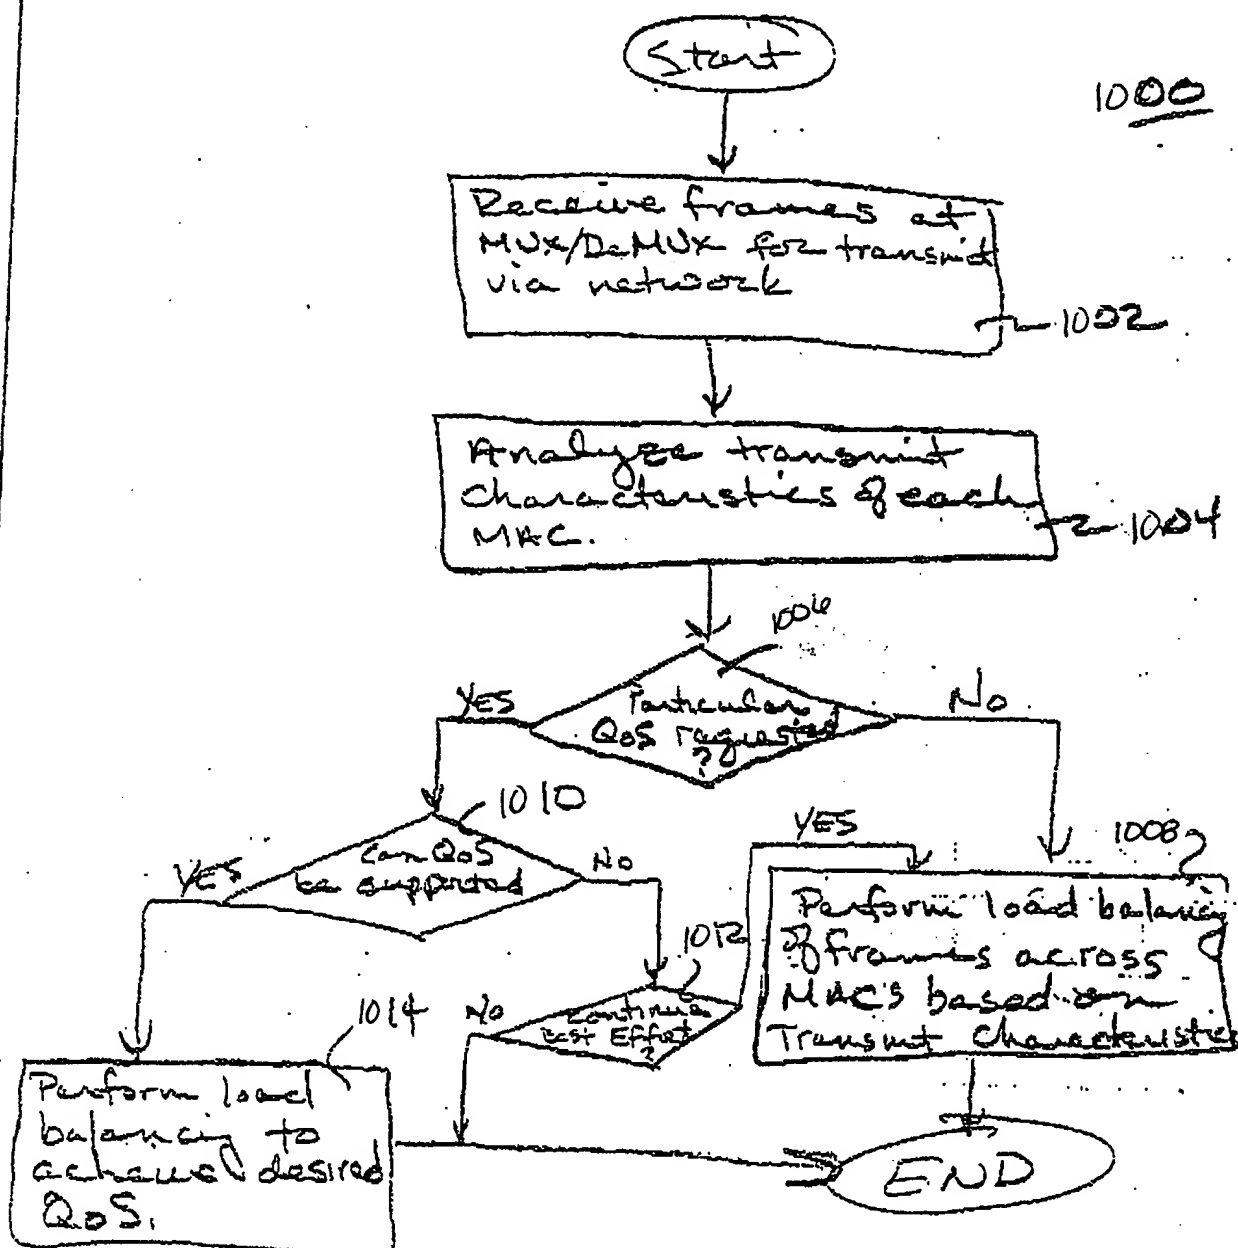 Start
1000
Receive frames at
MUX/DeMUX for transmit
via network
1002
Analyze transmit
Characteristics of each
MAC.
1004
1006
YES
Particular
QoS requested
?
No
1010
YES
Can QoS
be supported
No
YES
1008
Perform load balancing
of frames across
MACs based on
Transmit Characteristics
1012
No
Continue
Best Effort
?
1014
Perform load
balancing to
achieve desired
QoS.
END